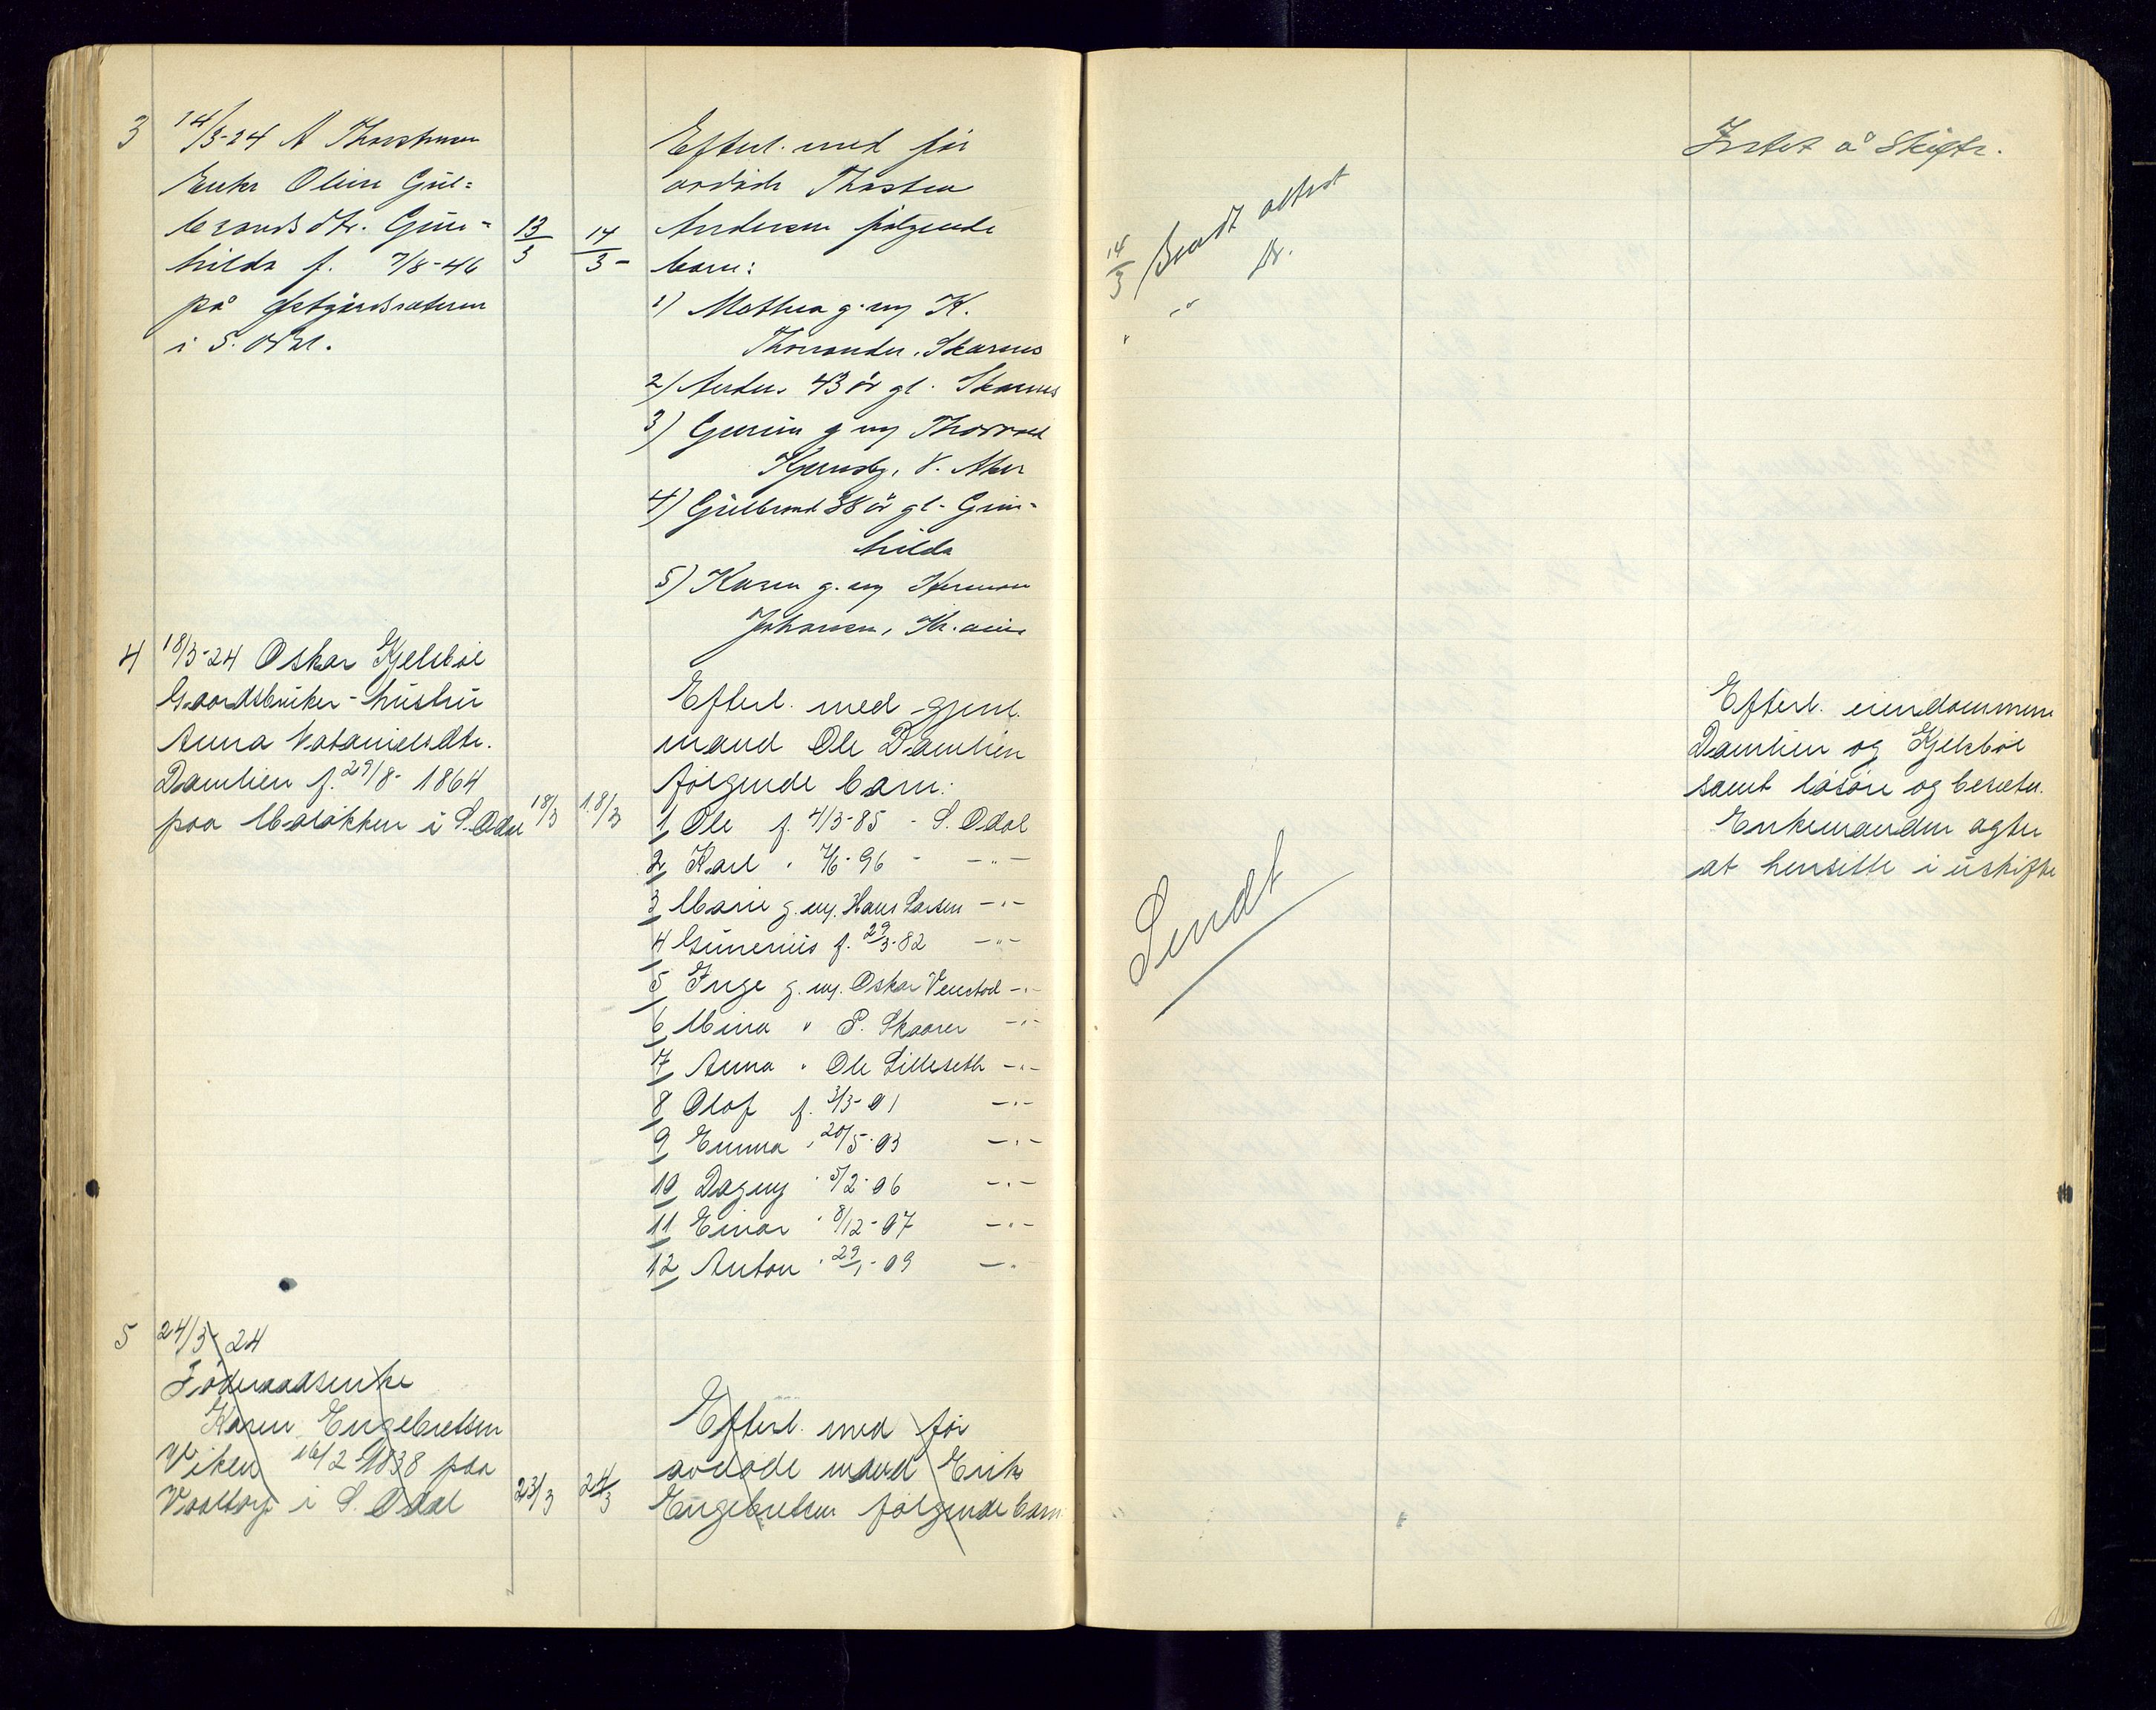 3
14/3-24 A Thorstensen
Enke Oline Gul=
brandsdtr. Gun=
hilda f. 7/8-46
på
i S. Odal.
13/3
14/3-
Efterl. med før
avdøde Thosten
Andersen følgende
barn:
1) Mathea g. m/ K.
Thorrander, Skarnes
2) Anders 43 år gl. Skarnes
3) Gurine g m/ Thorvald
V. Aker
4) Gulbrand 38 år gl. Gun=
hilda
5) Karen g. m/ Herman
Johansen, Kr.ania
4
18/3-24 Oskar Kjelsböl
Gaardsbruker-hustru
Anna Natanielsdtr.
Damlien f. 29/8-1864
paa i S. Odal
18/3
18/3
Efterl. med gjenl.
mand Ole Damlien
følgende barn:
1, Ole f. 4/3-85 - S. Odal
2, Karl " 7/6-96 - -"-
3, Marie g. m/. Hans Larsen -"-
4, Gunerius f. 29/3-82 -"-
5, Inge g. m/. Oskar Venstad -"-
6, Mina " P. Skaarer -"-
7, Anna " Ole Lilleseth -"-
8, Olof f. 3/3-01 -"-
9, Emma " 20/5-03 -"-
10, Dagny " 5/2-06 -"-
11, Einar " 8/12-07 -"-
12, Anton " 29/1-09 -"-
5
24/3-24
Föderaadsenke
Karen Engebretsen
Viken 16/2 1838 paa
Vaaltorp i S. Odal
23/3
24/3
Efterl. med før
avdøde mand Erik
Engebretsen følgende barn
14/3 Sendt attest
Sendt
Intet å Skifte.
Efterl. eiendommene
Damlien og Kjelsböl
samt løsøre og besetn.
Enkemanden agter
at hensitte i uskifte